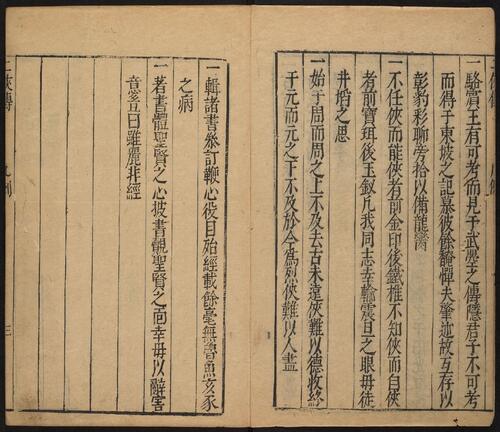 一駱賓王有可考而見于武曌之傳隱君子不可考
而得于東坡之記慕彼餘馣憚夫肇迹故互存以
彰豹彩聊旁拾以備龍臠
一不任俠而能俠者前金印後鐵椎不知俠而自俠
者前寶珥後玉釵凡我同志幸輪震旦之眼毋徒
井焰之思
一始于周而周之上不及去古未遠俠難以德收終
于元而元之下不及於今爲烈俠難以人盡
一輯諸書叅訂鞭心役目殆經載餘毫無魯魚亥豕
之病
一著書體聖賢之心披書覿聖賢之面幸毋以辭害
意者曰雖麗非經
三俠傳 凡例 三